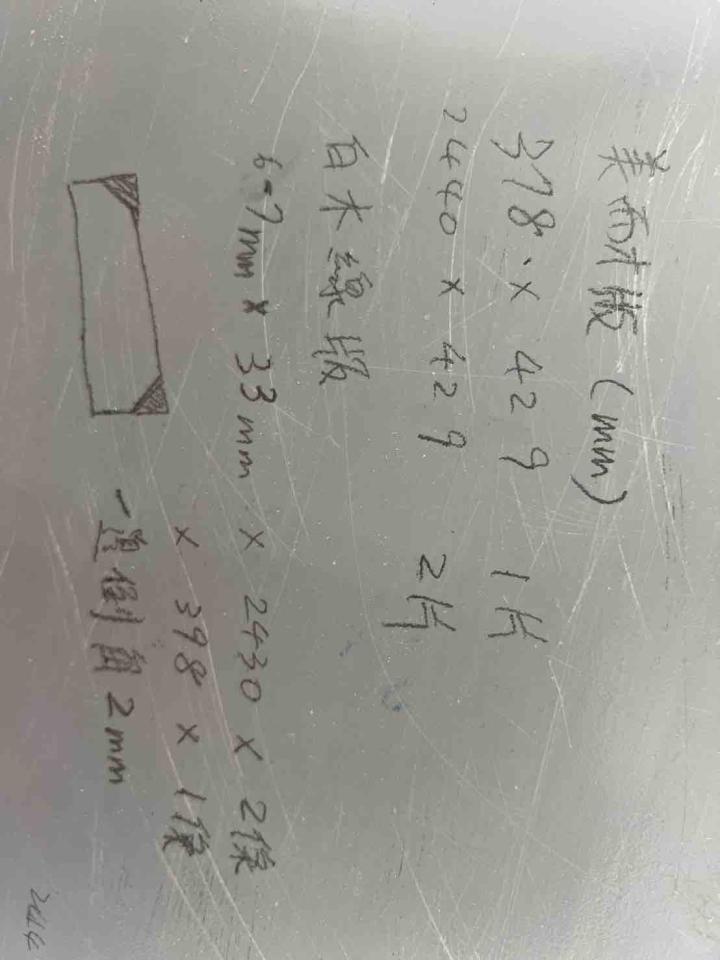 美耐板 (mm)
398 × 429 1片
2440 × 429 2片
白木線板
6-7mm × 33mm × 2430 × 2條
× 398 × 1條
一邊倒角2mm